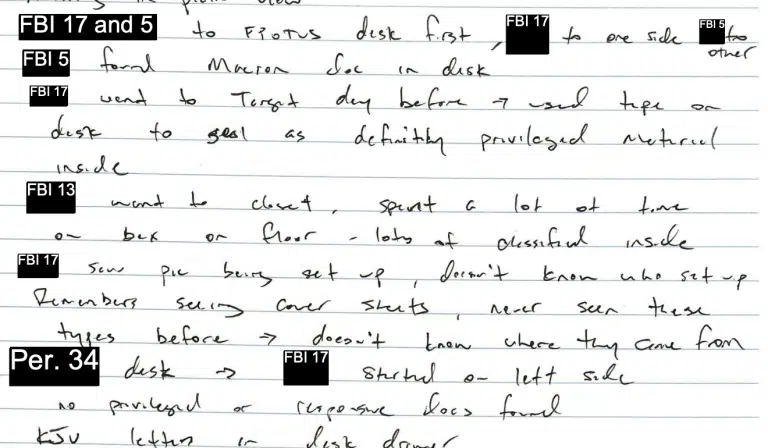 in plain view
FBI 17 and 5 to FPOTUS desk first, FBI 17 to one side FBI 5 to
other
FBI 5 found Macron doc in desk
FBI 17 went to Target day before → used tape on
desk to seal as definitly privileged material
inside
FBI 13 went to closet, spent a lot of time
on box on floor - lots of classified inside
FBI 17 saw pic being set up, doesn't know who set up
Remembers seeing cover sheets, never seen these
types before → doesn't know where they came from
Per. 34 desk → FBI 17 started on left side
no privileged or responsive docs found
KJU letters in desk drawer